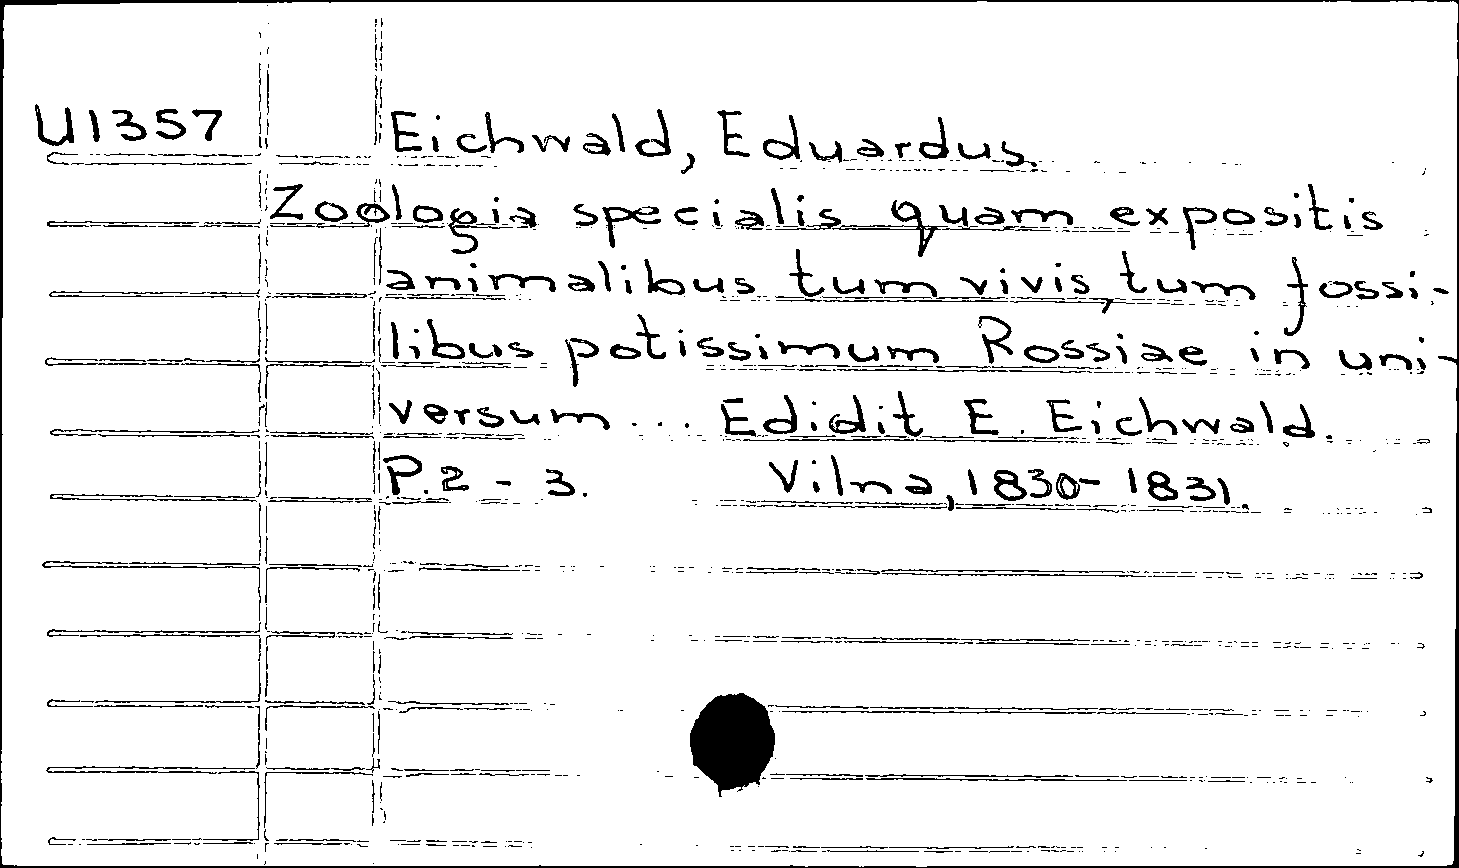 U1357
Eichwald, Eduardus.
Zoologia specialis quam expositis
animalibus tum vivis, tum fossi-
libus potissimum Rossiae in uni-
versum ... Edidit E. Eichwald.
P.2 - 3. Vilna, 1830-1831.